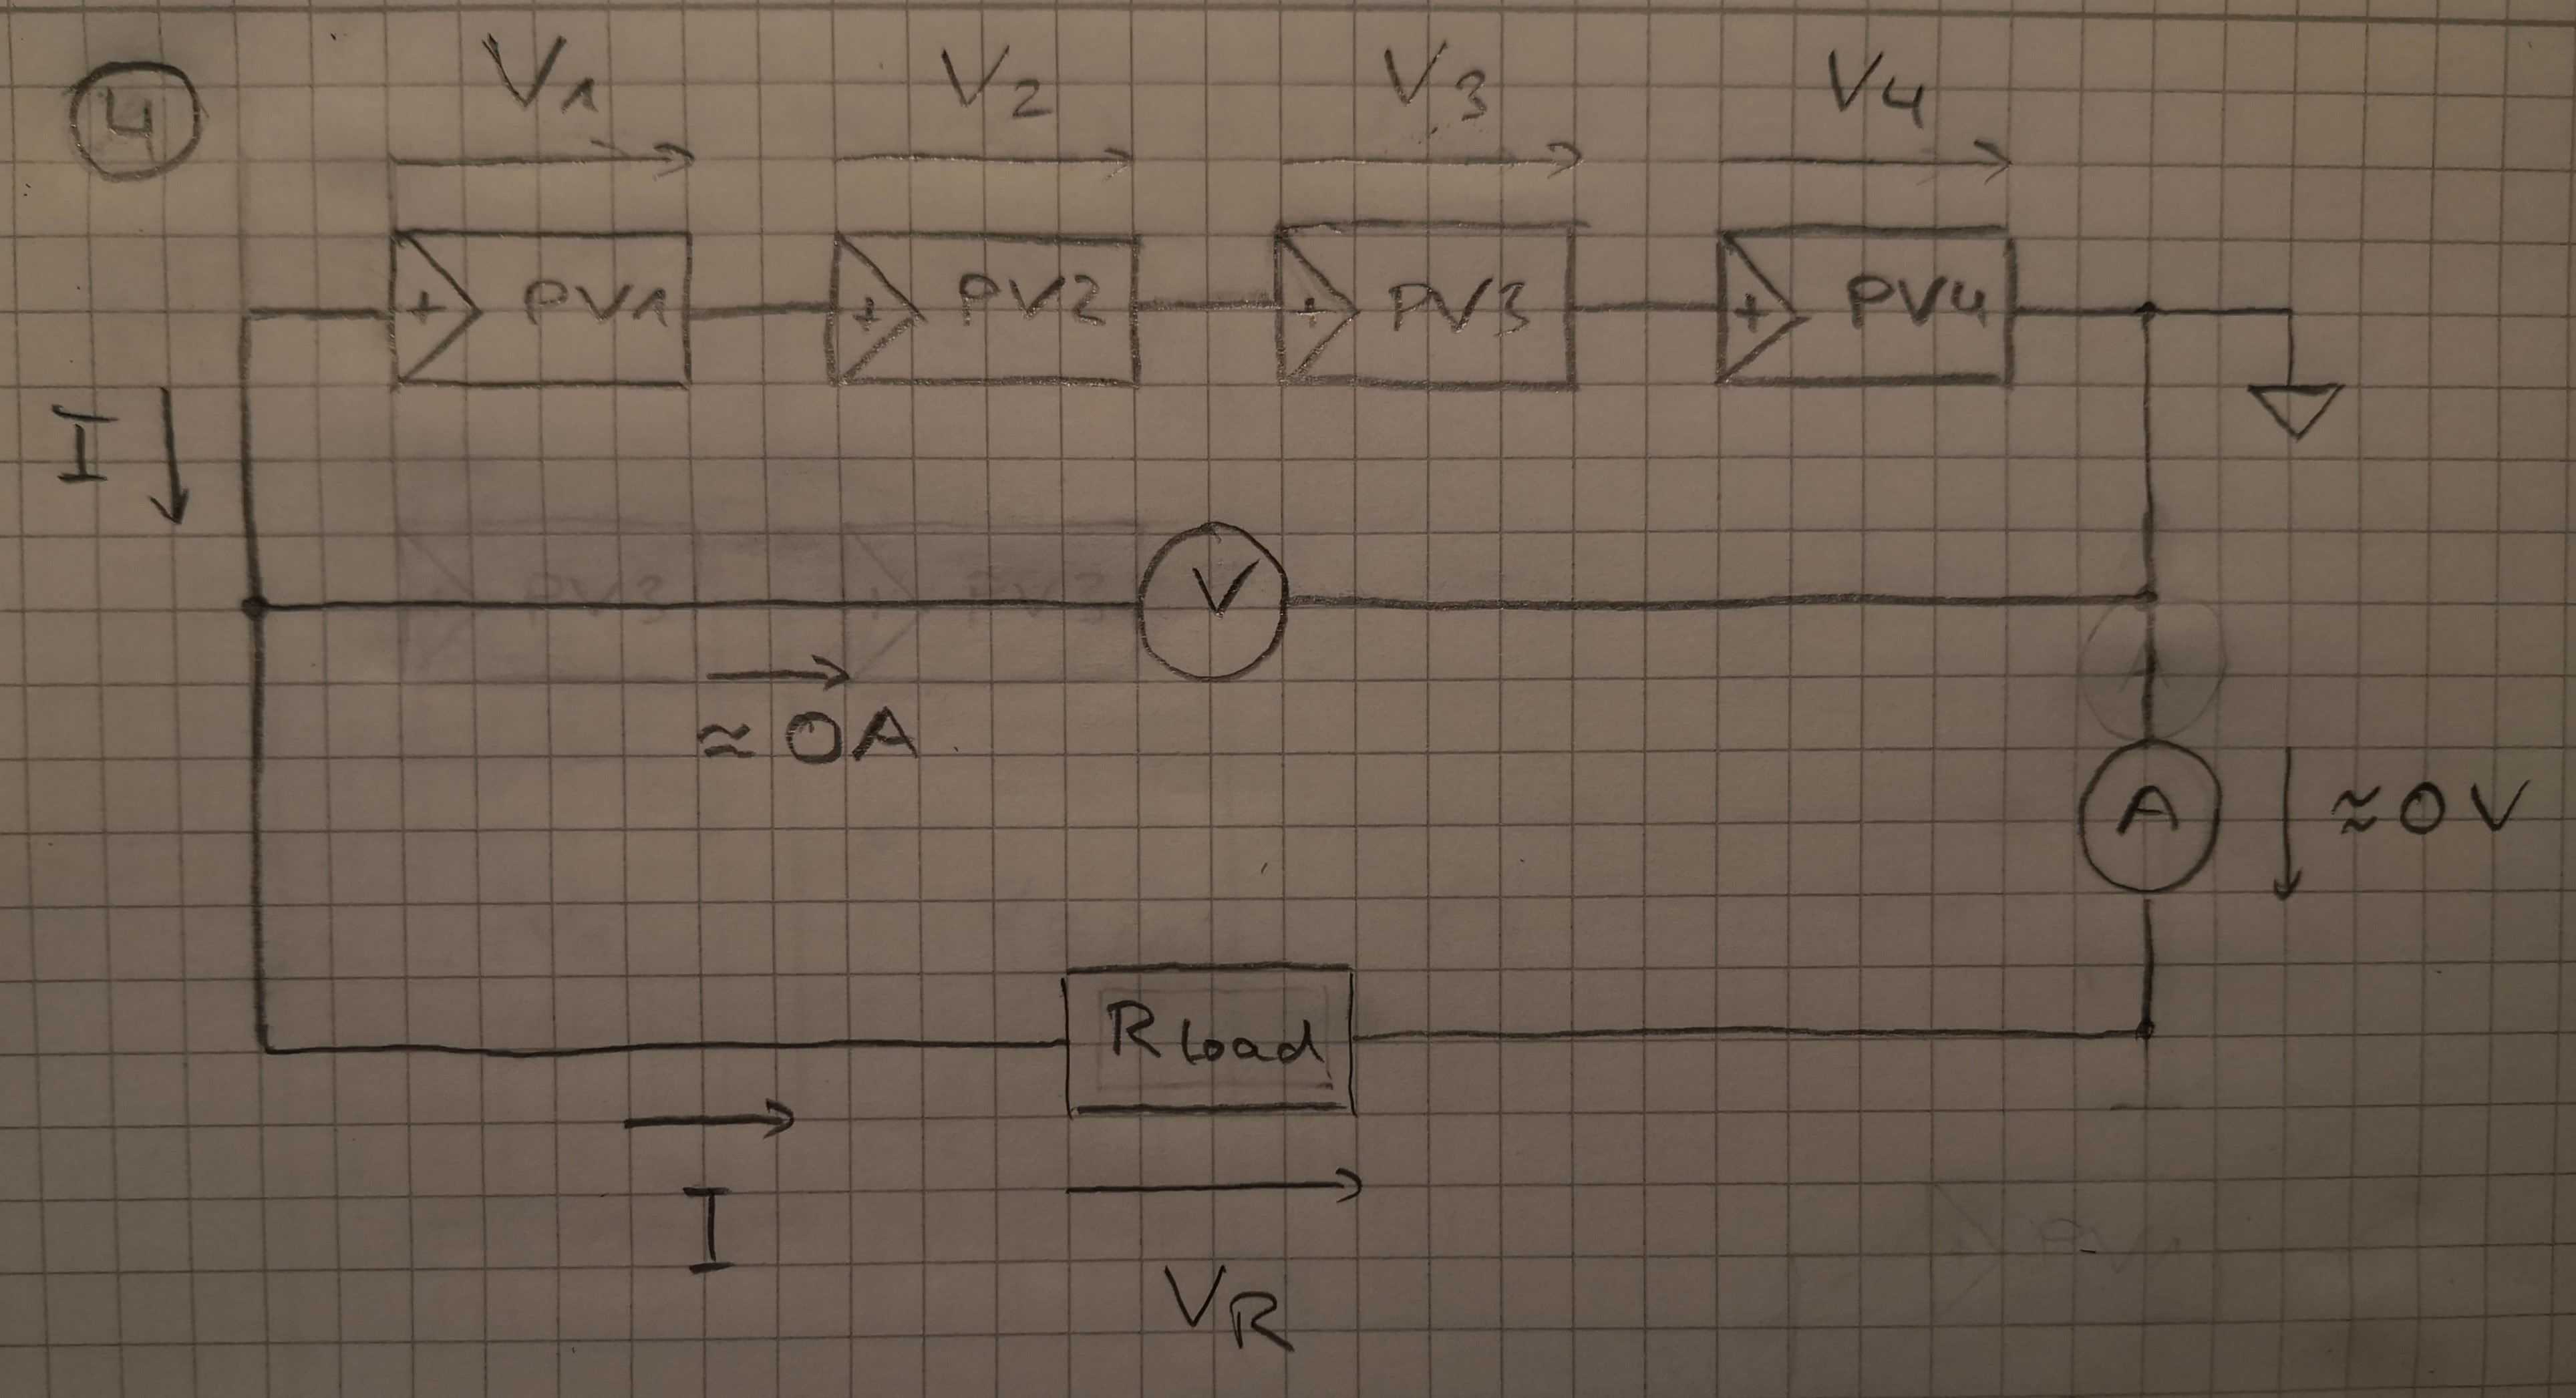 4
V1 V2 V3 V4
+ PV1 + PV2 + PV3 + PV4
I
PV3 PV3
V
A
≈ 0A
A ≈ 0V
R Load
I
VR
PV